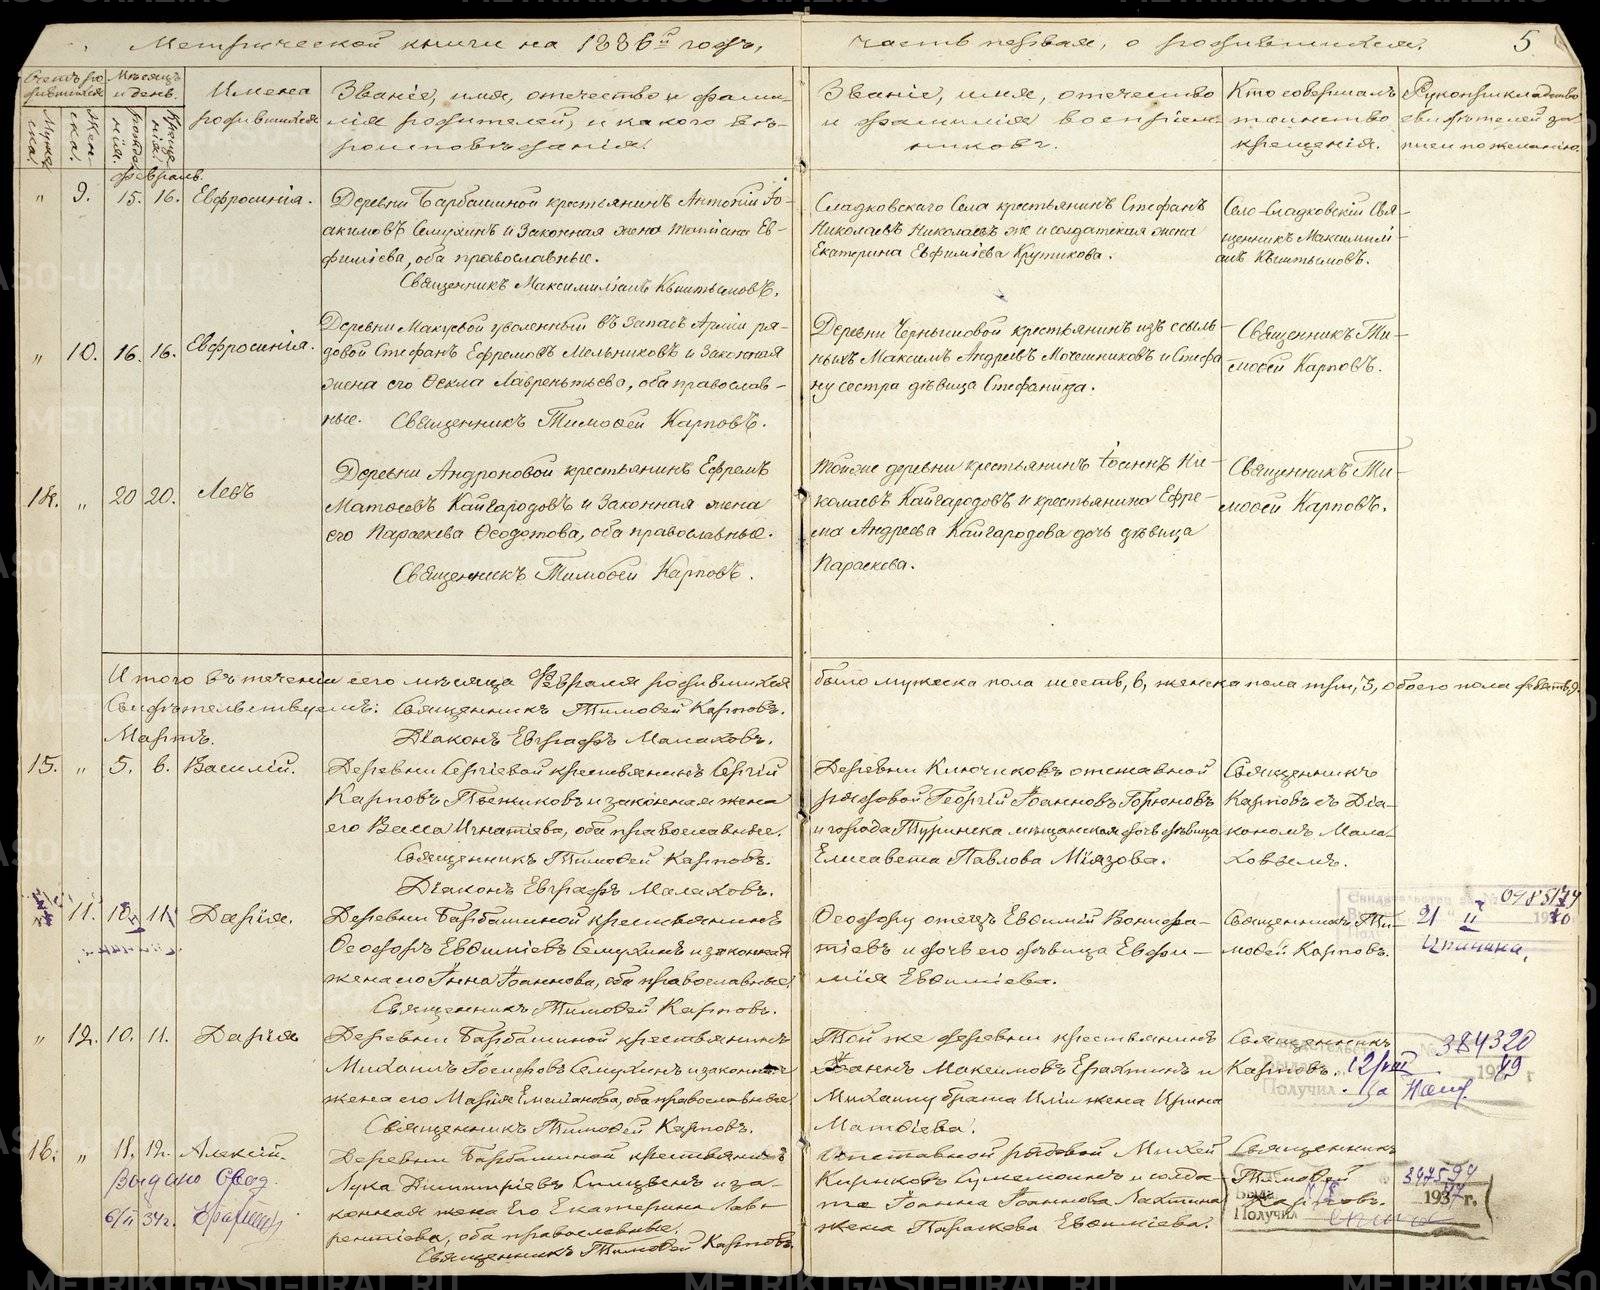 Метрической книги на 1886й годъ,
часть первая, о родившихся.
5
Счетъ ро-
дившихся
Мѣсяцъ
и день.
Мужес-
ска.
Жен-
ска.
рожде-
нія.
креще-
нія.
Имена
родившихся
Званіе, имя, отечество и фами-
лія родителей, и какого вѣ-
роисповѣданія.
Званіе, имя, отечество
и фамилія воспріем-
никовъ.
Кто совершалъ
таинство
крещенія.
Рукоприкладство
свидѣтелей за-
писи по желанію.
Февраль.
" 9. 15. 16. Евфросинія.
Деревни Барбашиной крестьянинъ Антоній Іо-
акимовъ Семухинъ и законная жена Татіана Ев-
фиміева, оба православные.
Священникъ Максимиліанъ Кыштымовъ.
Сладковскаго Села крестьянинъ Стефанъ
Николаевъ Николаевъ же и солдатская жена
Екатерина Евфиміева Крутикова.
Село-Сладковскій Свя-
щенникъ Максимилі-
анъ Кыштымовъ.
" 10. 16. 16. Евфросинія.
Деревни Макуевой уволенный въ запасъ Арміи ря-
довой Стефанъ Ефремовъ Мельниковъ и законная
жена его Ѳекла Лаврентьева, оба православ-
ные. Священникъ Тимоѳей Карповъ.
Деревни Чернышовой крестьянинъ изъ ссыль-
ныхъ Максимъ Андреевъ Мочешниковъ и Стефа-
ну сестра дѣвица Стефанида.
Священникъ Ти-
моѳей Карповъ.
14. " 20 20. Левъ
Деревни Андроновой крестьянинъ Ефремъ
Матѳеевъ Кайгародовъ и законная жена
его Параскева Ѳеодотова, оба православные.
Священникъ Тимоѳей Карповъ.
Тойже деревни крестьянинъ Іоаннъ Ни-
колаевъ Кайгародовъ и крестьянина Ефре-
ма Андреева Кайгородова дочь дѣвица
Параскева.
Священникъ Ти-
моѳей Карповъ.
Итого въ теченіи сего мѣсяца Февраля родившихся
было мужеска пола шесть, 6, женска пола три, 3, обоего пола девять, 9.
Свидѣтельствуемъ: Священникъ Тимоѳей Карповъ.
Діаконъ Евграфъ Малаховъ.
Мартъ.
15. " 5. 6. Василій.
Деревни Сергіевой крестьянинъ Сергій
Карповъ Пыжиковъ и законная жена
его Васса Игнатіева, оба православные.
Священникъ Тимоѳей Карповъ.
Діаконъ Евграфъ Малаховъ.
Деревни Ключиковъ отставной
рядовой Георгій Іоанновъ Горюновъ
и города Туринска мѣщанская дочь дѣвица
Елисавета Павлова Міязова.
Священникъ
Карповъ съ Діа-
кономъ Мала-
ховымъ.
11. 10 11. Дарія.
Деревни Барбашиной крестьянинъ
Ѳеодоръ Евѳиміевъ Семухинъ и законная
жена его Анна Іоаннова, оба православные.
Священникъ Тимоѳей Карповъ.
Ѳеодору отецъ Евѳимій Вонифа-
тіевъ и дочь его дѣвица Евфи-
мія Евѳиміева.
Священникъ Ти-
моѳей Карповъ.
Свидетельство
21 II
" 12. 10. 11. Дарія
Деревни Барбашиной крестьянинъ
Михаилъ Іосифовъ Семухинъ и законная
жена его Марія Емеліанова, оба православные.
Священникъ Тимоѳей Карповъ.
Той же деревни крестьянинъ
Іоаннъ Максимовъ Брахтинъ и
Михаилу брата Иліи жена Ирина
Матѳіева.
Священникъ
Карповъ.
384320
12/VIII 49
Получил
16. " 11. 12. Алексій.
Деревни Барбашиной крестьянинъ
Лука Димитріевъ и за-
конная жена Его Екатерина Лав-
рентіева, оба православные.
Священникъ Тимоѳей Карповъ.
Отставной рядовой Михей
Кириковъ и солда-
та Іоанна Іоаннова Лахтина
жена Параскева Евѳиміева.
Священникъ
Тимоѳей
Карповъ.
Выдано Свид.
6/II 34г.
1937 г.
Получил